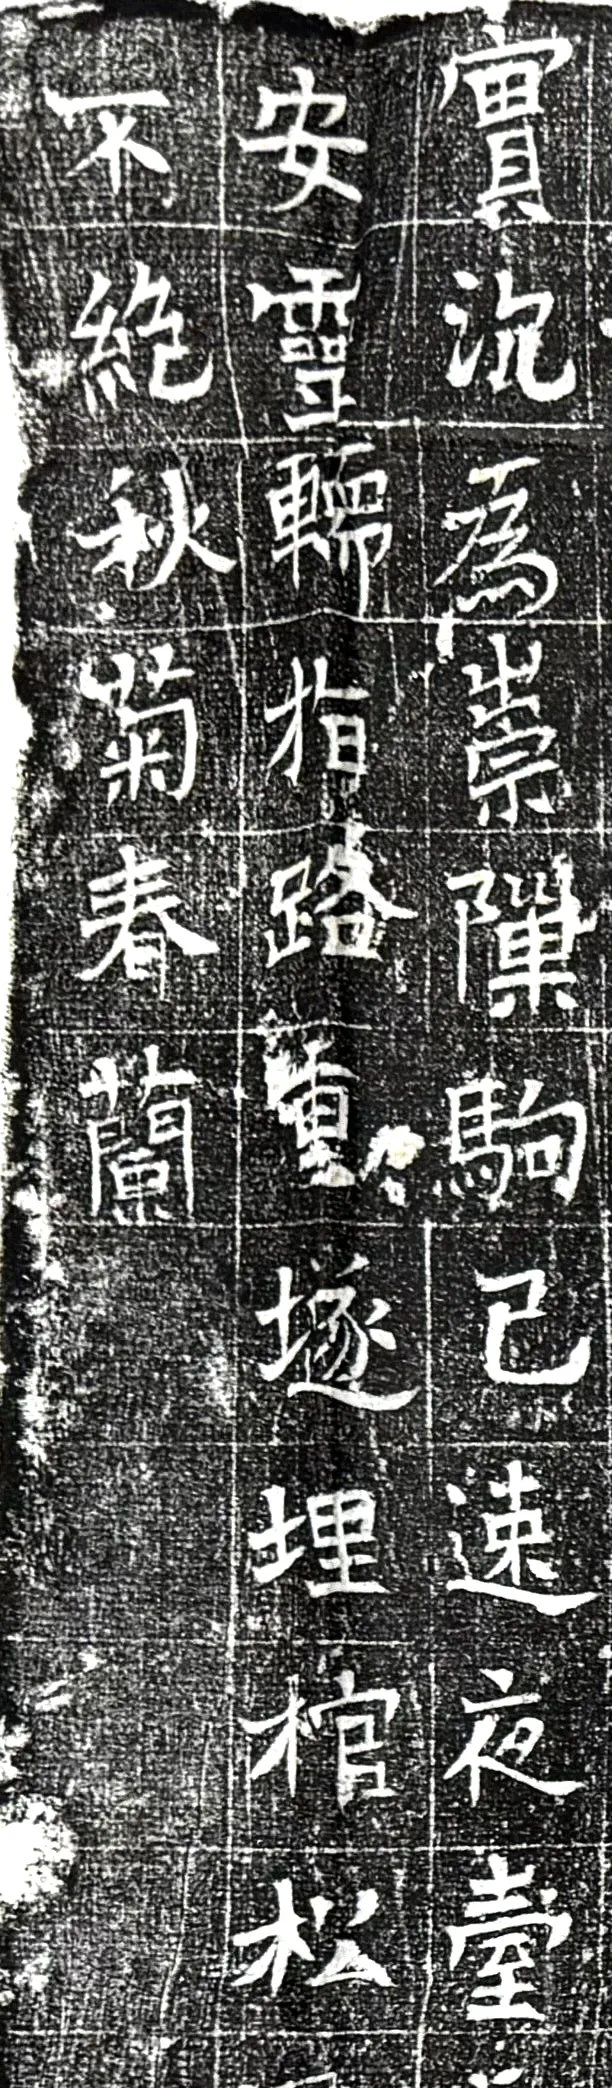 實沉為崇隟駒已速夜臺
安靈輀指路重墜埋棺松
不絶秋菊春蘭